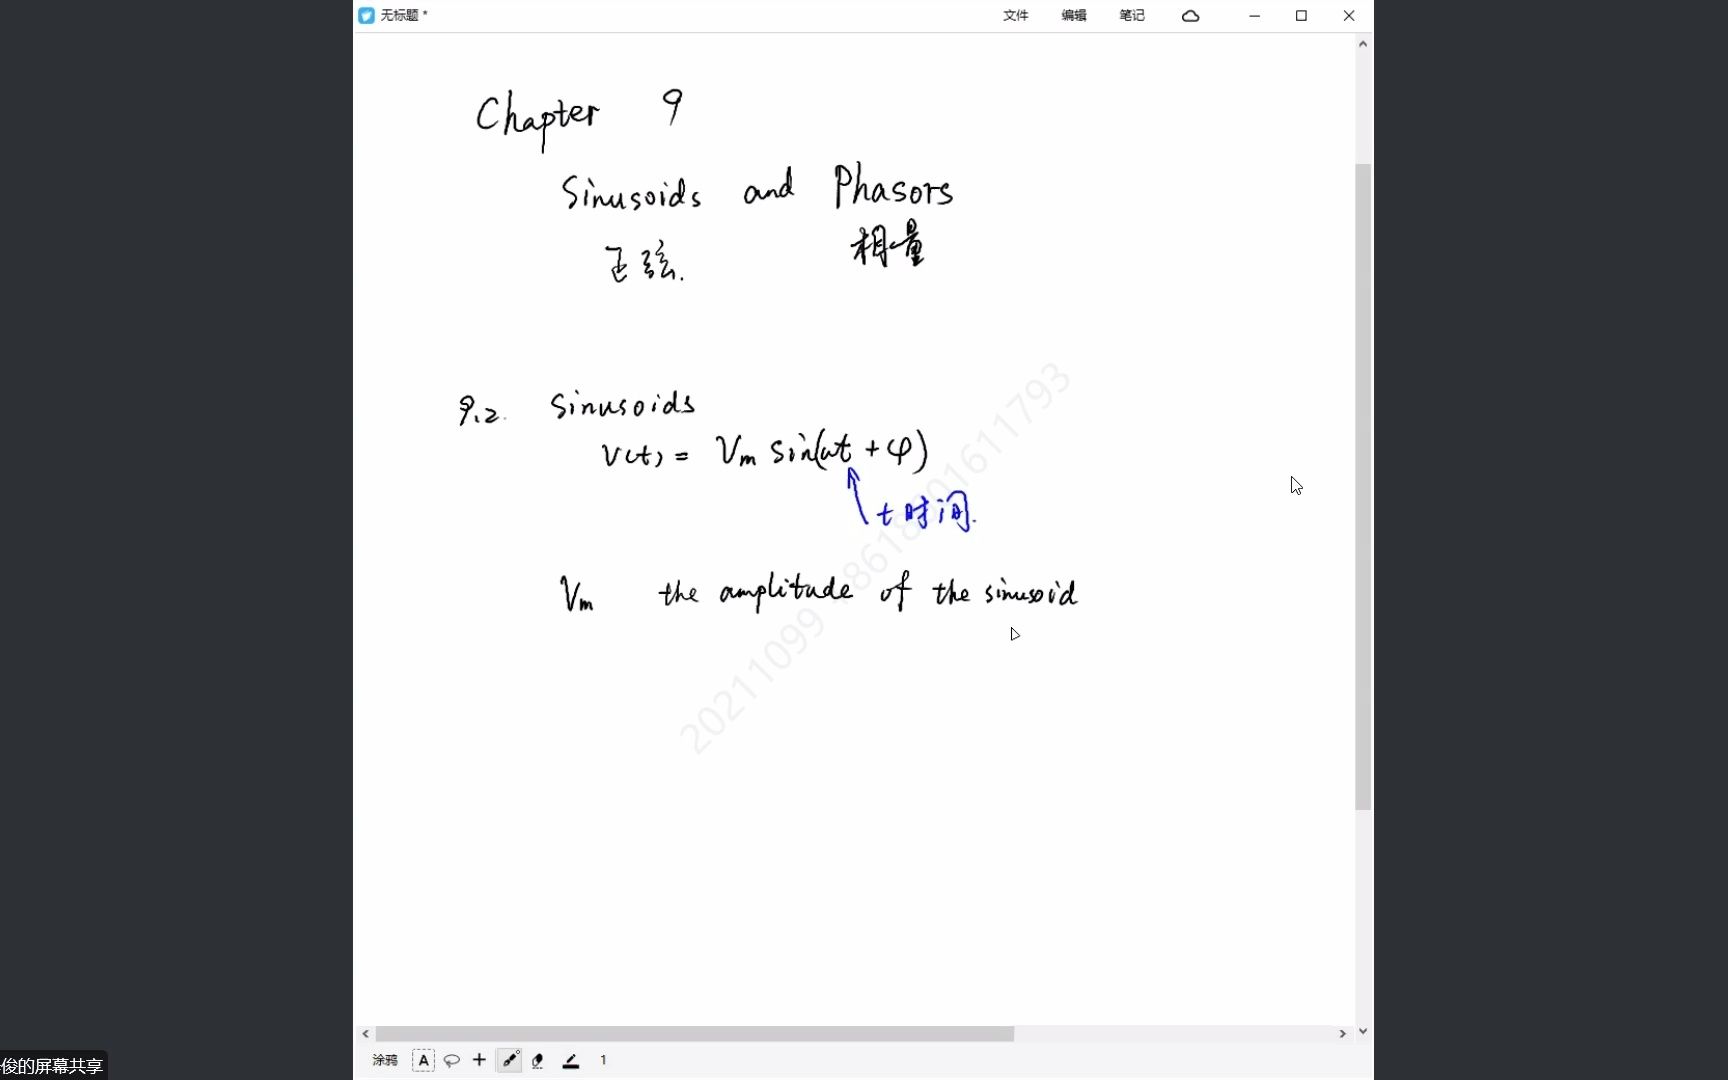 无标题 *
文件 编辑 笔记
Chapter 9
Sinusoids and Phasors
正弦. 相量
9.2. Sinusoids
v(t) = Vm sin(ωt + φ)
t 时间.
Vm the amplitude of the sinusoid
涂鸦 A 1
俊的屏幕共享